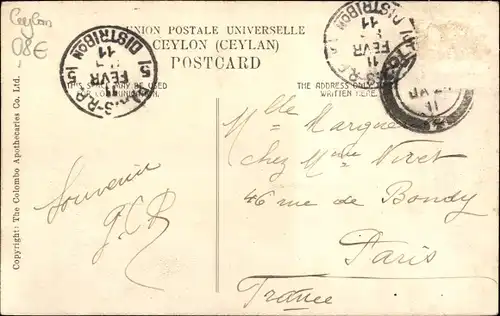 Ceylon
UNION POSTALE UNIVERSELLE
CEYLON (CEYLAN)
POSTCARD
THIS SPACE MAY BE USED
FOR COMMUNICATION.
THE ADDRESS ONLY
WRITTEN HERE.
DISTRIBON
11
FEVR
11
51
DISTRIBON
11
FEVR
11
Copyright: The Colombo Apothecaries Co. Ltd.
Souvenir
Mlle Margue
chez Mme Viret
46 rue de Bondy
Paris
France